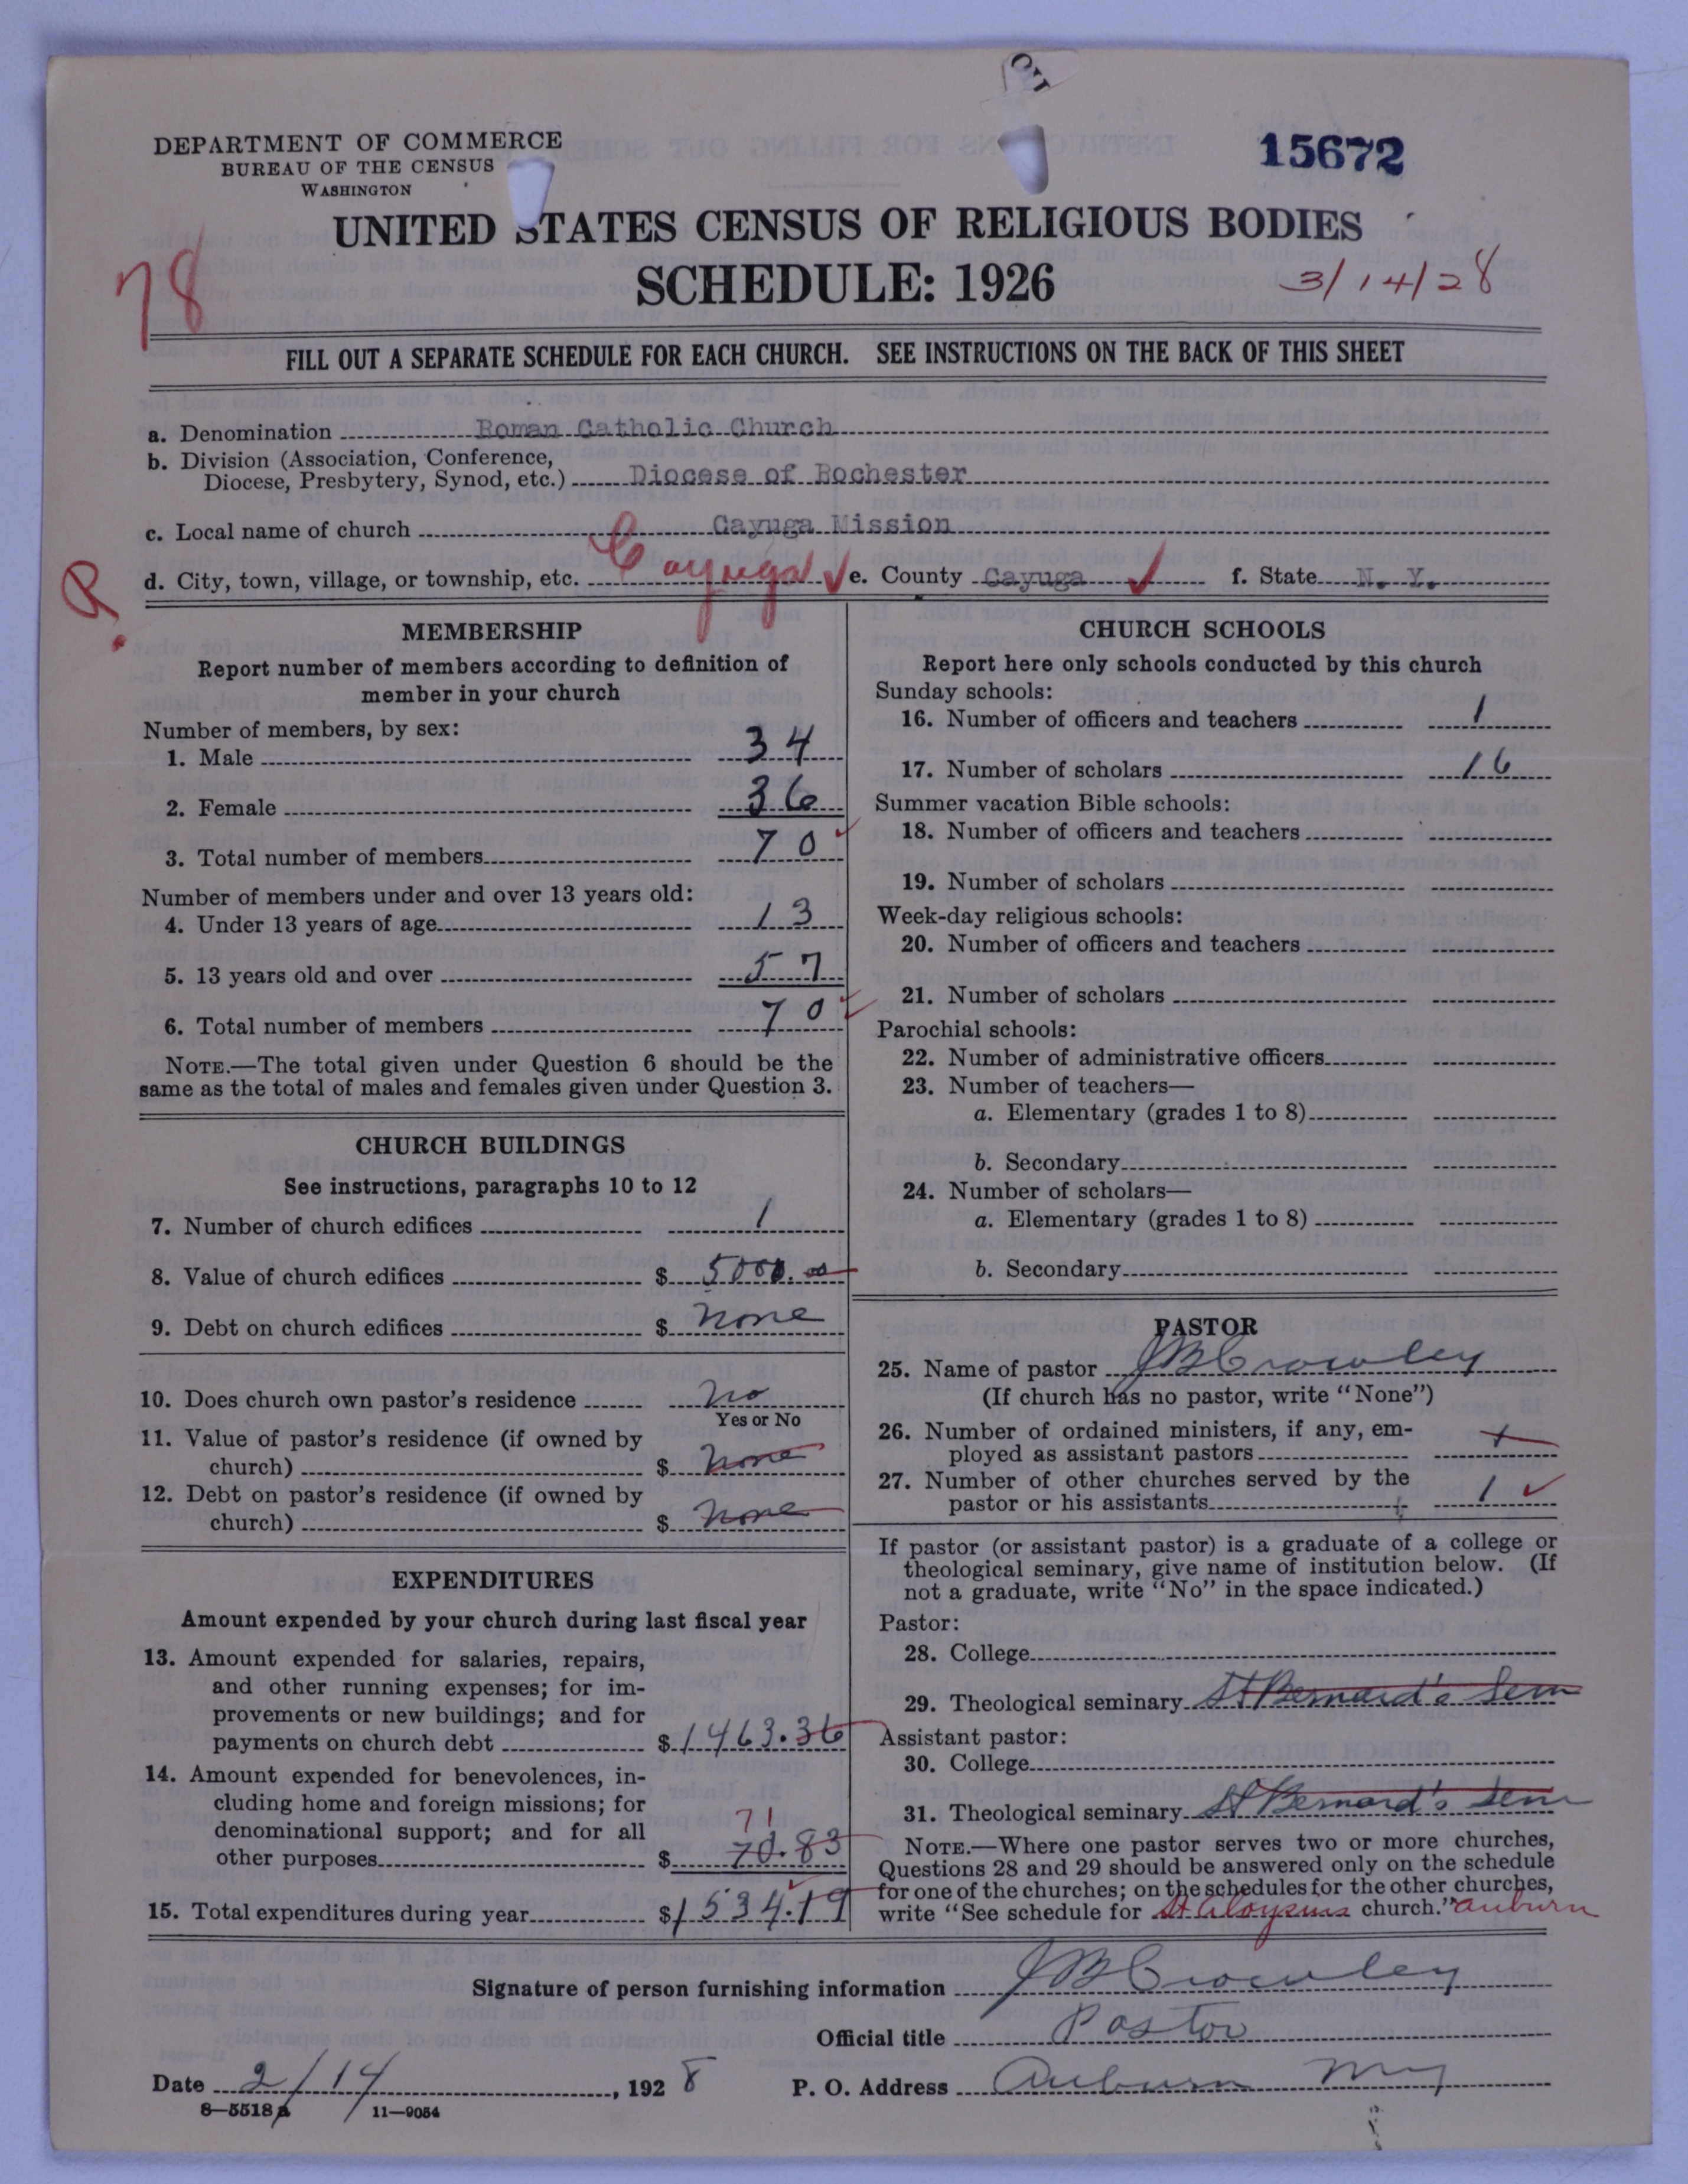 DEPARTMENT OF COMMERCE
BUREAU OF THE CENSUS
WASHINGTON
15672
UNITED STATES CENSUS OF RELIGIOUS BODIES
SCHEDULE: 1926
78
3/14/28
FILL OUT A SEPARATE SCHEDULE FOR EACH CHURCH. SEE INSTRUCTIONS ON THE BACK OF THIS SHEET
a. Denomination Roman Catholic Church
b. Division (Association, Conference,
Diocese, Presbytery, Synod, etc.) Diocese of Rochester
c. Local name of church Cayuga Mission
R.
d. City, town, village, or township, etc. Cayuga ✓ e. County Cayuga ✓ f. State N. Y.
MEMBERSHIP
Report number of members according to definition of
member in your church
Number of members, by sex:
1. Male 34
2. Female 36
3. Total number of members 70 ✓
Number of members under and over 13 years old:
4. Under 13 years of age 13
5. 13 years old and over 57
6. Total number of members 70 ✓
NOTE.—The total given under Question 6 should be the
same as the total of males and females given under Question 3.
CHURCH BUILDINGS
See instructions, paragraphs 10 to 12
7. Number of church edifices 1
8. Value of church edifices $ 5000.00
9. Debt on church edifices $ none
10. Does church own pastor's residence no
Yes or No
11. Value of pastor's residence (if owned by
church) $ none
12. Debt on pastor's residence (if owned by
church) $ none
EXPENDITURES
Amount expended by your church during last fiscal year
13. Amount expended for salaries, repairs,
and other running expenses; for im-
provements or new buildings; and for
payments on church debt $1463.36
14. Amount expended for benevolences, in-
cluding home and foreign missions; for
denominational support; and for all
71
other purposes $ 70.83
15. Total expenditures during year $1534.19
CHURCH SCHOOLS
Report here only schools conducted by this church
Sunday schools:
16. Number of officers and teachers 1
17. Number of scholars 16
Summer vacation Bible schools:
18. Number of officers and teachers
19. Number of scholars
Week-day religious schools:
20. Number of officers and teachers
21. Number of scholars
Parochial schools:
22. Number of administrative officers
23. Number of teachers—
a. Elementary (grades 1 to 8)
b. Secondary
24. Number of scholars—
a. Elementary (grades 1 to 8)
b. Secondary
PASTOR
25. Name of pastor JB Crowley
(If church has no pastor, write "None")
26. Number of ordained ministers, if any, em-
ployed as assistant pastors
27. Number of other churches served by the
pastor or his assistants 1 ✓
If pastor (or assistant pastor) is a graduate of a college or
theological seminary, give name of institution below. (If
not a graduate, write "No" in the space indicated.)
Pastor:
28. College
29. Theological seminary St Bernard's Sem
Assistant pastor:
30. College
31. Theological seminary St Bernard's Sem
NOTE.—Where one pastor serves two or more churches,
Questions 28 and 29 should be answered only on the schedule
for one of the churches; on the schedules for the other churches,
write "See schedule for St Aloysius church." Auburn
Signature of person furnishing information JB Crowley
Official title Pastor
Date 2/14, 1928 P. O. Address Auburn NY
8—5518a 11—9054